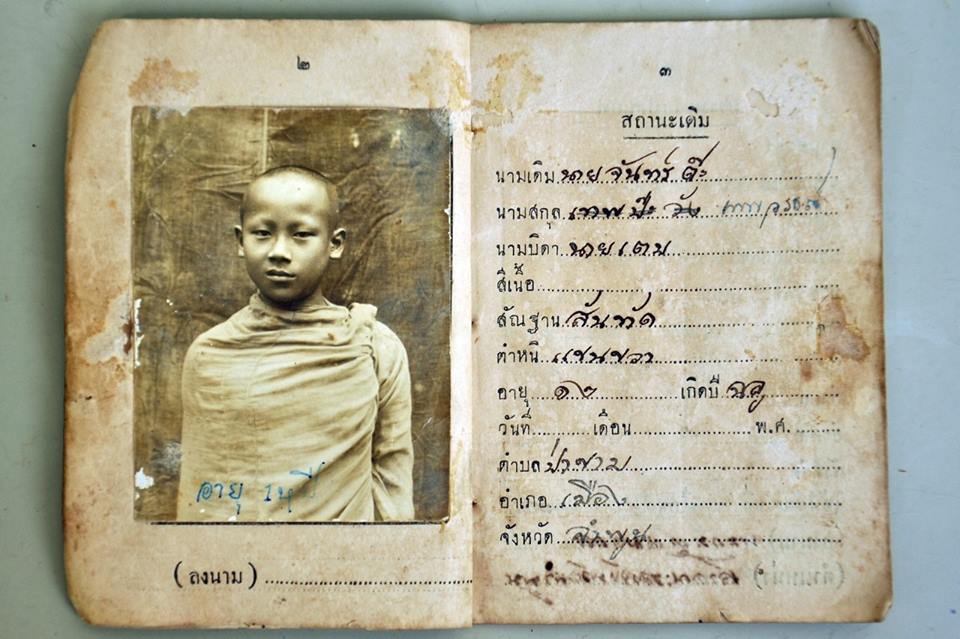 ๒
อายุ ๑๒ ปี
(ลงนาม)
๓
สถานะเดิม
นามเดิม นาย จันทร์ ต๊ะ
นามสกุล เทพ ป๊ะ วัง
นามบิดา นาย เตม
สีเนื้อ
สัณฐาน สันทัด
ตำหนิ แขนขวา
อายุ ๑๒ เกิดปี ฉลู
วันที่ เดือน พ.ศ.
ตำบล ป่าซาง
อำเภอ เมือง
จังหวัด ลำพูน